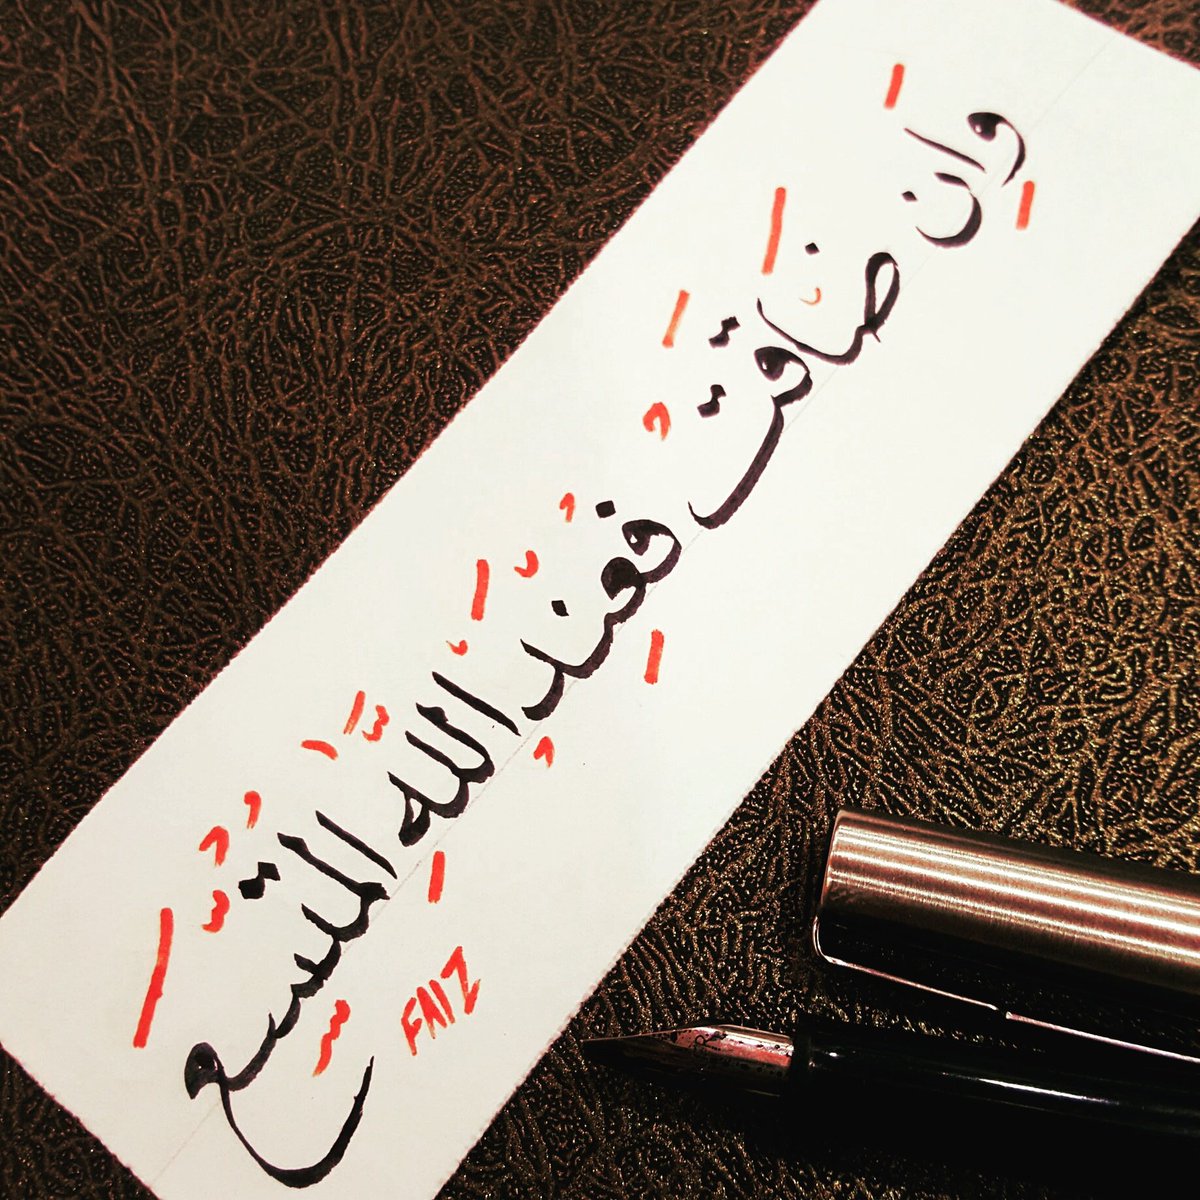 وَاِن ضَاقَتْ فَعِنْدَ اللَّهِ الْمُتَّسَع
FAIZ